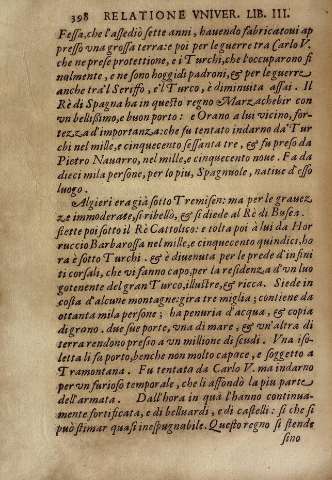 398 RELATIONE VNIVER. LIB. III.
Fessa, che l'assediò sette anni, hauendo fabricatoui ap
presso vna grossa terra: e poi per le guerre tra Carlo V.
che ne prese protettione, e i Turchi, che l'occuparono fi
nalmente, e ne sono hoggidì padroni, & per le guerre
anche tra'l Seriffo, e'l Turco, è diminuita assai. Il
Rè di Spagna ha in questo regno Marzachebir con
vn bellissimo, e buon porto: e Orano a lui vicino, for-
tezza d'importanza: che fu tentato indarno da' Tur
chi nel mille, e cinquecento sessanta tre, & fu preso da
Pietro Nauarro, nel mille, e cinquecento noue. Fa da
dieci mila persone, per lo più, Spagnuole, natiue d'esso
luogo.
Algieri era già sotto Tremisen: ma per le grauez
ze immoderate, si ribellò, & si diede al Rè di Busea.
stette poi sotto il Rè Cattolico: e tolta poi à lui da Hor
ruccio Barbarossa nel mille, e cinquecento quindici, ho
ra è sotto Turchi. & è diuenuta per le prede d'infini
ti corsali, che vi fanno capo, per la residenza d'vn luo
gotenente del gran Turco, illustre, & ricca. Siede in
costa d'alcune montagne: gira tre miglia; contiene da
ottanta mila persone; ha penuria d'acqua, & copia
di grano. due sue porte, vna di mare, & vn'altra di
terra rendono presso a vn millione di scudi. Vna iso-
letta li fa porto, benche non molto capace, e soggetto a
Tramontana. Fu tentata da Carlo V. ma indarno
per vn furioso temporale, che li affondò la piu parte
dell'armata. Dall'hora in quà l'hanno continua-
mente fortificata, e di belluardi, e di castelli: sì che si
può stimar quasi inespugnabile. Questo regno si stende
sino